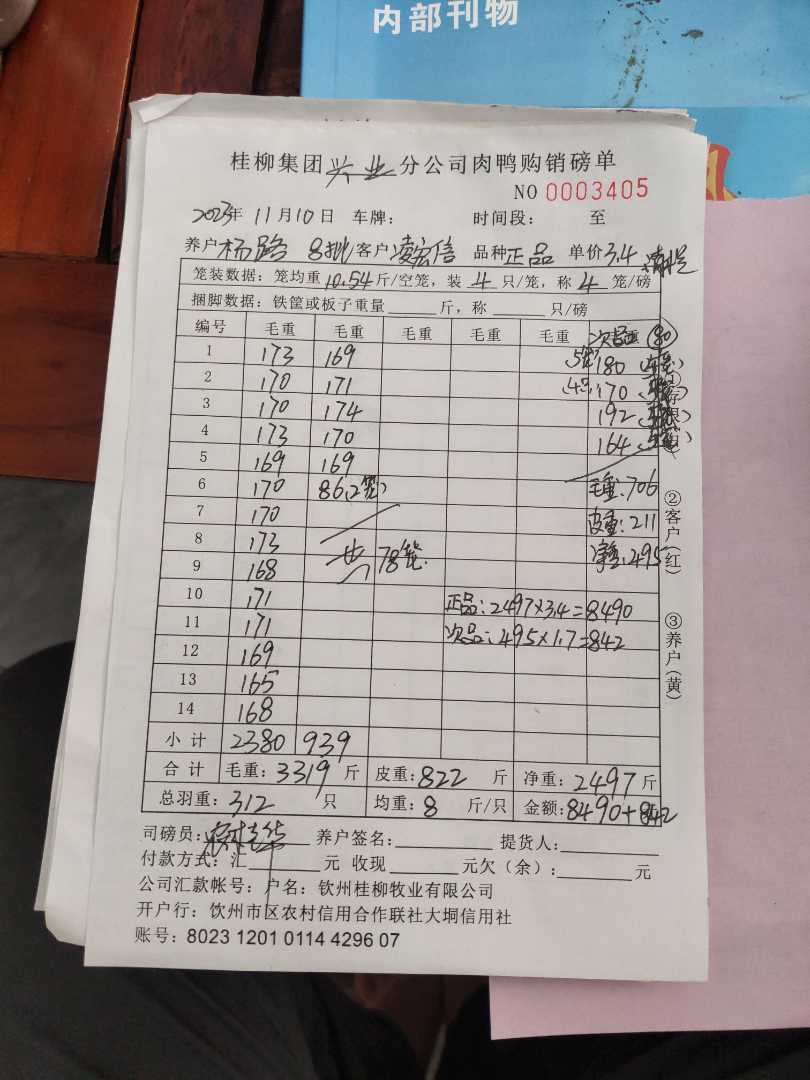 内部刊物
桂柳集团兴业分公司肉鸭购销磅单
NO 0003405
2023年11月10日 车牌: 时间段: 至
养户杨路 8批客户凌宏信 品种正品 单价3.4
笼装数据: 笼均重10.54斤/空笼, 装4只/笼, 称4笼/磅
捆脚数据: 铁筐或板子重量 斤, 称 只/磅
编号 毛重 毛重 毛重 毛重 毛重 次品 80
1 173 169 5笼 180
2 170 171 4只 170
3 170 174 192
4 173 170 164
5 169 169
6 170 86(2笼) 毛重: 706
7 170 皮重: 211
8 173 共 78笼 净重: 495
9 168
10 171 正品: 2497×3.4=8490
11 171 次品: 495×1.7=842
12 169
13 165
14 168
小计 2380 939
合计 毛重: 3319斤 皮重: 822斤 净重: 2497斤
总羽重: 312只 均重: 8斤/只 金额: 8490+842
①存根
②客户(红)
③养户(黄)
司磅员: 养户签名: 提货人:
付款方式: 汇 元 收现 元欠(余): 元
公司汇款帐号: 户名: 钦州桂柳牧业有限公司
开户行: 饮州市区农村信用合作联社大垌信用社
账号: 8023 1201 0114 4296 07